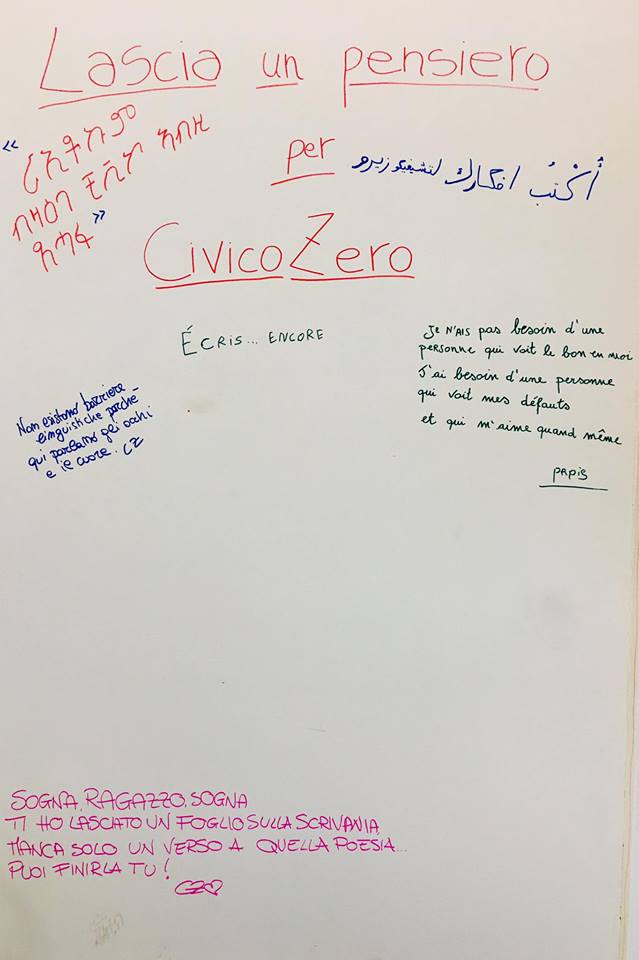 Lascia un pensiero
« 
ብዛዕባ
»
per
أُكْتُبْ افكارك لتشفيكو زيرو
CivicoZero
Écris... encore
Je n'ais pas besoin d'une
personne qui voit le bon en moi
J'ai besoin d'une personne
qui voit mes défauts
et qui m'aime quand même
papis
Non esistono barriere
linguistiche perché
qui parlano gli occhi
e il cuore. CZ
SOGNA, RAGAZZO, SOGNA
TI HO LASCIATO UN FOGLIO SULLA SCRIVANIA,
MANCA SOLO UN VERSO A QUELLA POESIA...
PUOI FINIRLA TU!
CZ♡